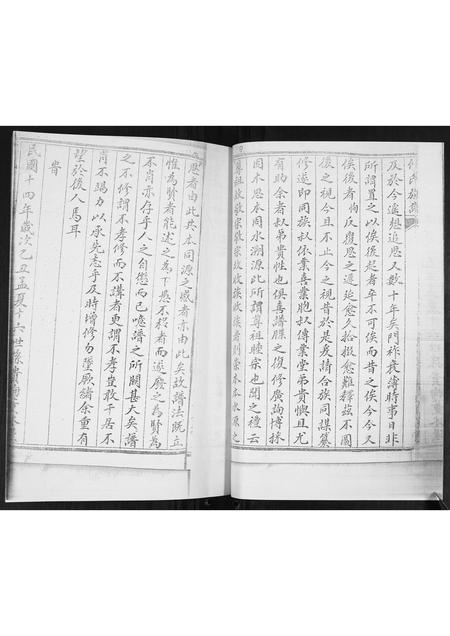 及於今遙想追思又數十年矣門祚衰薄時事日非
所謂置之以俟後起者卒不可俟而昔之俟今今又
俟後者恂反覆思之遲延愈久拾掇愈難釋茲不圖
後之視今且不止今之視昔於是爰請合族同謀纂
修遂即同族叔依業喜業胞叔傳業堂弟貴懊且尤
有助余者叔弟貴性也俱喜譜牒之復修廣詢博採
因木思本因水溯源此所謂尊祖睦宗也聞之禮云
尊祖故敬宗敬宗故收族收族者則崇木本水源之
思者由此共本同源之感者亦由此矣故譜法既立
惟為賢者能述之為下愚不移者而遂廢之為賢為
不肖亦存乎人之自慿而已噫譜之所關甚大矣譜
之不修謂不孝修而不講者更謂不孝豈敢干居不
肖不竭力以承先志乎及時增修勿墜厥緒余重有
望於後人焉耳
民國十四年歲次乙丑孟夏十六世孫貴恂